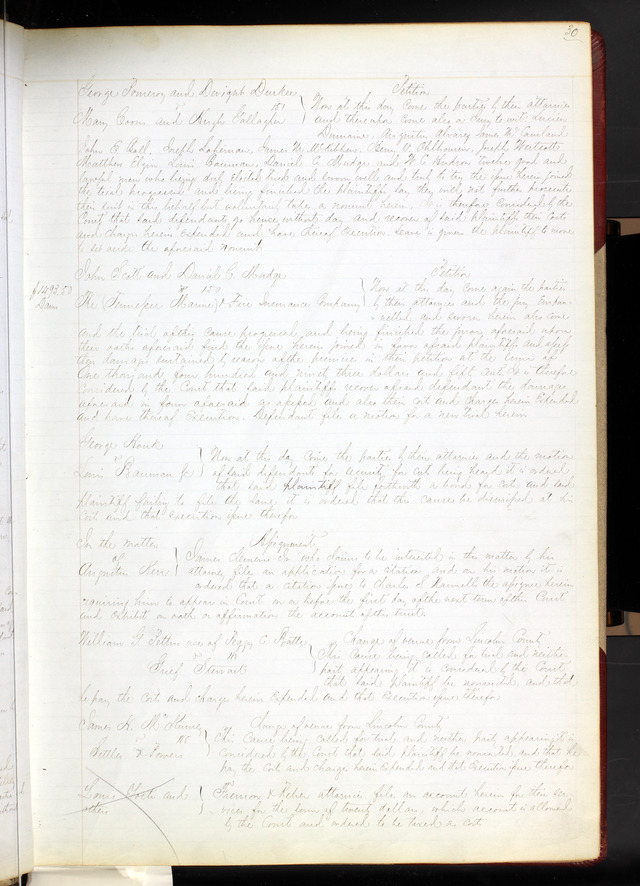 30
George Pomeroy and Dwight Durkee Petition
151 Now at this day come the parties by their attornies
Mary Coons and Hugh Gallagher and thereupon come also a Jury to wit: Lucien
Dumaine, Augustin Alvarez James W.
John E. Ball, Joseph James W. McKibben, Henry V. Joseph Westcott
Matthew Elgin, Louis Bauman, Daniel C. Mudge and W. C. Hudson twelve good and
lawful men who being duly elected tried and sworn well and truly to try the issue herein joined
the trial progressed and being finished the plaintiffs say they will not further prosecute
their suit in this behalf but voluntarily take a nonsuit herein. It is therefore considered by the
Court that said defendants go hence without day and recover of said plaintiffs their costs
and charges herein expended and have thereof execution. Leave is given the plaintiffs to move
to set aside the aforesaid nonsuit
John Scott and Daniel C. Mudge Petition
$1493.50 150 Now at this day come again the parties
Dam The Tennessee Marine & Fire Insurance Company by their attornies and the jury empan-
nelled and sworn herein also come
and the trial of this cause progressed and being finished the jurors aforesaid upon
their oaths aforesaid find the issue herein joined in favor of said plaintiffs and assess
their damages sustained by reason of the premises in their petition at the sum of
One thousand four hundred and ninety three dollars and fifty cents It is therefore
considered by the Court that said plaintiffs recover of said defendant the damages
aforesaid in form aforesaid assessed and also their costs and charges herein expended
and have thereof execution. Defendant files a motion for a new trial herein.
George Hauk
vs Now at this day come the parties by their attornies and the motion
Louis Bauman Jr of said defendant for security for costs being heard it is ordered
that said plaintiff file forthwith a bond for costs and said
plaintiff failing to file the same it is ordered that this cause be dismissed at his
cost and that execution issue therefor
In the matter Assignment
of James Clemens Jr. who claims to be interested in this matter by his
Augustus Kerr attorney files an application for a citation and on his motion it is
ordered that a citation issue to Charles S. Rannells the assignee herein
requiring him to appear in Court on or before the first day of the next term of this Court
and exhibit on oath or affirmation the account of the trust.
William G. use of Change of venue from Lincoln County
vs This cause being called for trial and neither
Grief Stewart party appearing it is considered by the Court
that said plaintiff be nonsuited and that
he pay the cost and charges herein expended and that execution issue therefor
James H. Change of venue from Lincoln County
vs This cause being called for trial and neither party appearing it is
Settles & considered by the Court that said plaintiff be nonsuited, and that he
pay the cost and charges herein expended and that Execution issue therefor
Louis and attornies file an account herein for their ser-
others vices for the sum of twenty dollars, which account is allowed
by the Court and ordered to be taxed as costs